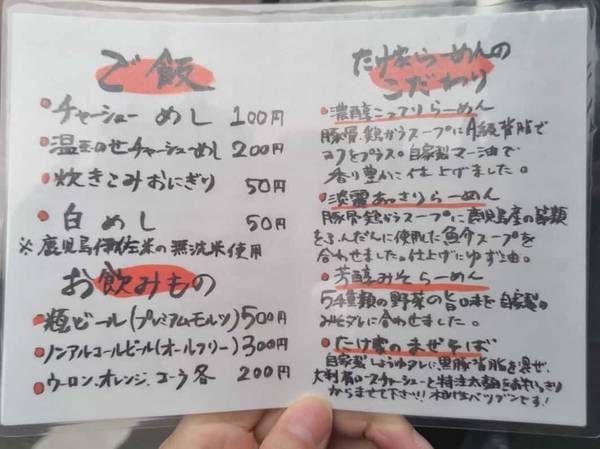 ご飯
・チャーシューめし 100円
・温玉のせチャーシューめし 200円
・炊きこみおにぎり 50円
・白めし 50円
※鹿児島伊佐米の無洗米使用
お飲みもの
・瓶ビール(プレミアムモルツ) 500円
・ノンアルコールビール(オールフリー) 300円
・ウーロン、オレンジ、コーラ各 200円
たけ家らーめんの
こだわり
・濃醇こってりらーめん
豚骨、鶏がらスープにA級背脂で
コクをプラス。自家製マー油で
香り豊かに仕上げました。
・淡麗あっさりらーめん
豚骨鶏がらスープに鹿児島産の節類
をふんだんに使用した魚介スープを
合わせました。仕上げにゆず油。
・芳醇みそらーめん
5種類の野菜の旨味を自家製の
みそダレに合わせました。
・たけ家のまぜそば
自家製しょうゆダレに黒豚背脂を混ぜ、
大判肩ロースチャーシューと特注太麺をお思いっきり
からませて下さい!!相性バツグンです!